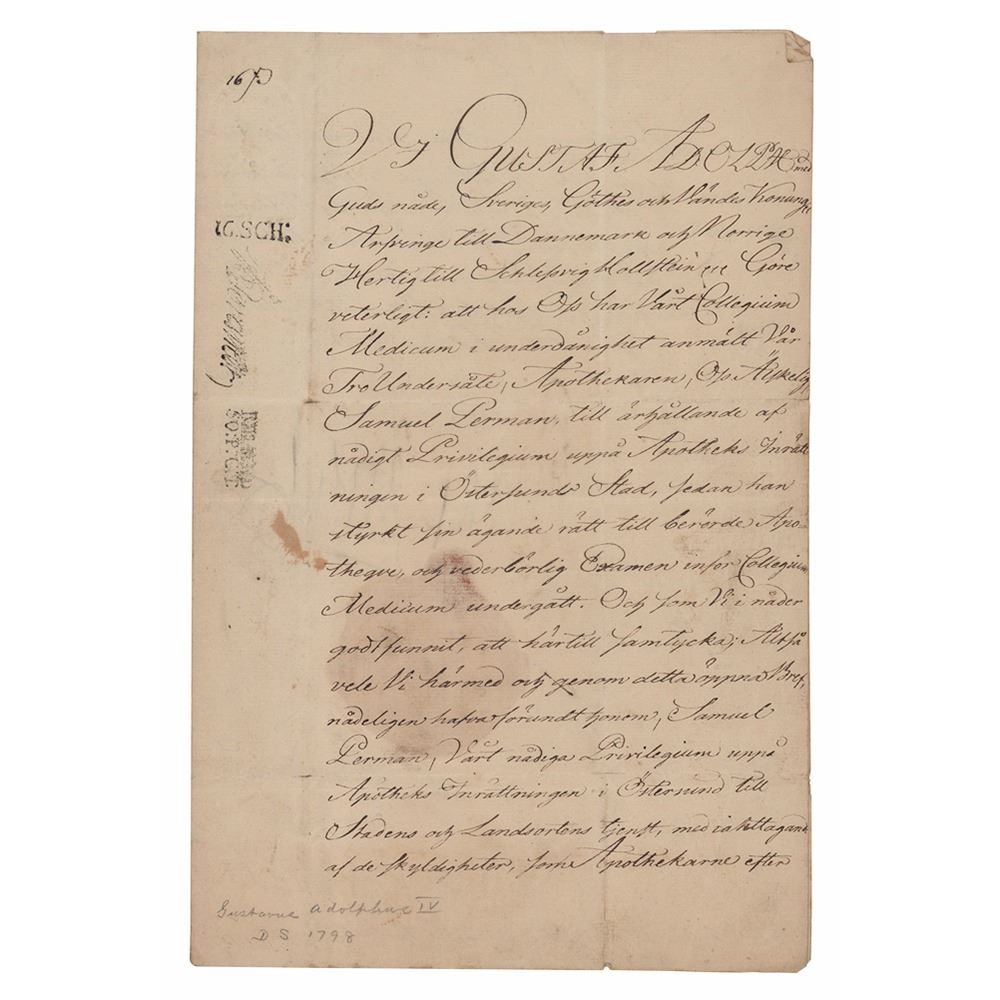 16
16.SCH:
SO:P:C:T
VJ GUSTAF ADOLPH med
Guds nåde, Sveriges, Göthes och Vändes Konung,
Arfvinge till Dannemark och Norrige
Hertig till Schlesvig Hollstein Göre
veterligt: att hos Oss har Vårt Collegium
Medicum i underdånighet anmält Vår
Tro Undersåte, Apothekaren, Oss Älskelig
Samuel Perman, till ärhållande af
nådigt Privilegium uppå Apotheks Inrätt
ningen i Östersunds Stad, sedan han
styrkt sin ägande rätt till berörde Apo-
theque, och vederbörlig Examen inför Collegium
Medicum undergått. Och som Vi i nåder
godtfunnit, att härtill samtycka; Altså
vele Vi härmed och genom detta öppna Bref,
nådeligen hafva förundt honom, Samuel
Perman, Vårt nådiga Privilegium uppå
Apotheks Inrättningen i Östersund till
Stadens och Landsortens tjenst, med iakttagand
af de skyldigheter, som Apothekarne efter
Gustavus Adolphus IV
D S 1798